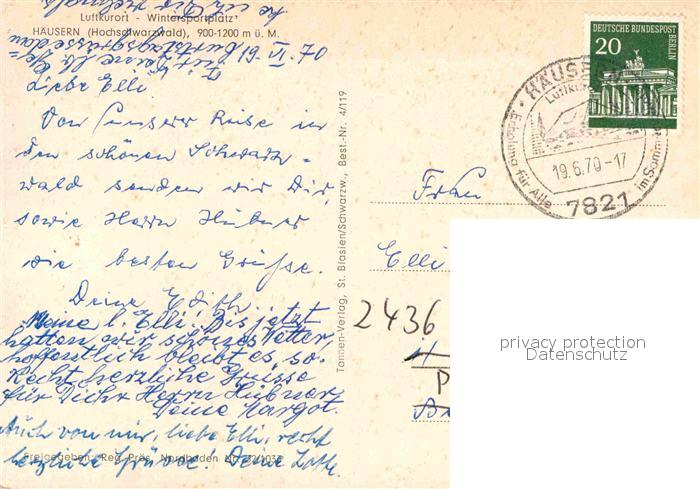 Luftkurort - Wintersportplatz
HÄUSERN (Hochschwarzwald), 900-1200 m ü. M.
19. VI. 70
Liebe Elli!
Von unserer Reise in
den schönen Schwarz-
wald senden wir Dir,
sowie Herrn Hübner,
die besten Grüsse.
Deine Edith.
Meine l. Elli! Bis jetzt
hatten wir schönes Wetter,
hoffentlich bleibt es so.
Recht herzliche Grüsse
für Dich Herrn Hübner
Deine Margot.
Auch von mir, liebe Elli, recht
herzliche Grüsse! Deine Lotte.
Freigegeben: Reg. Präs. Nordbaden No.
Tannen-Verlag, St. Blasien/Schwarzw., Best.-Nr. 4/119
DEUTSCHE BUNDESPOST
BERLIN
20
HÄUSERN
Erholung für Alle
im Sommer
19.6.70-17
7821
Frau
Elli
2436
privacy protection
Datenschutz